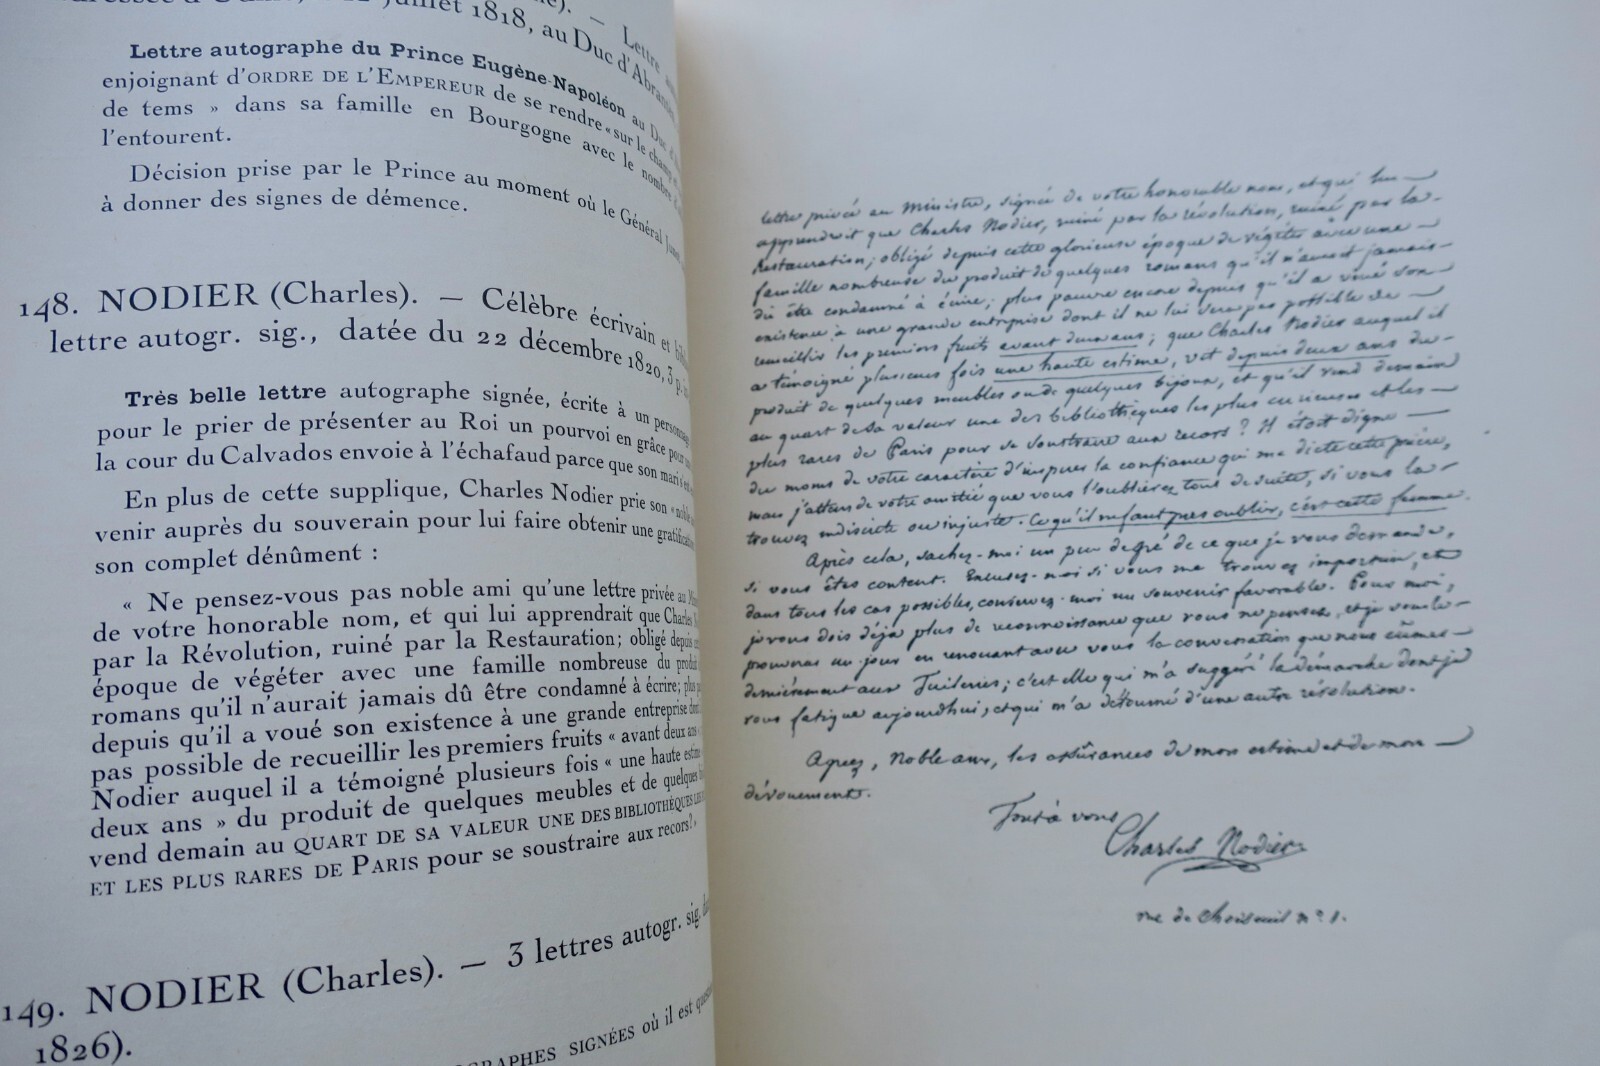 juillet 1818, au Duc d'Abrantès
Lettre autographe du Prince Eugène-Napoléon au Duc
enjoignant d'ORDRE DE L'EMPEREUR de se rendre « sur le champ
de tems » dans sa famille en Bourgogne avec le nombre
l'entourent.
Décision prise par le Prince au moment où le Général Junot
à donner des signes de démence.
148. NODIER (Charles). — Célèbre écrivain et
lettre autogr. sig., datée du 22 décembre 1820, 3 p.
Très belle lettre autographe signée, écrite à un personnage
pour le prier de présenter au Roi un pourvoi en grâce pour
la cour du Calvados envoie à l'échafaud parce que son mari s'est
En plus de cette supplique, Charles Nodier prie son « noble
venir auprès du souverain pour lui faire obtenir une gratification
son complet dénûment :
« Ne pensez-vous pas noble ami qu'une lettre privée au
de votre honorable nom, et qui lui apprendrait que Charles
par la Révolution, ruiné par la Restauration; obligé depuis
époque de végéter avec une famille nombreuse du produit
romans qu'il n'aurait jamais dû être condamné à écrire; plus
depuis qu'il a voué son existence à une grande entreprise dont
pas possible de recueillir les premiers fruits « avant deux ans
Nodier auquel il a témoigné plusieurs fois « une haute
deux ans » du produit de quelques meubles et de quelques
vend demain au QUART DE SA VALEUR UNE DES BIBLIOTHÈQUES LES
ET LES PLUS RARES DE PARIS pour se soustraire aux recors?»
149. NODIER (Charles). — 3 lettres autogr. sig.
1826).
SIGNÉES où il est
lettre privée au Ministre, signée de votre honorable nom, et qui lui
apprendroit que Charles Nodier, ruiné par la révolution, ruiné par la
Restauration; obligé depuis cette glorieuse époque de végéter avec une
famille nombreuse du produit de quelques romans qu'il n'auroit jamais
dû être condamné à écrire; plus pauvre encore depuis qu'il a voué son
existence à une grande entreprise dont il ne lui sera pas possible de
recueillir les premiers fruits avant deux ans; que Charles Nodier auquel il
a témoigné plusieurs fois une haute estime, vit depuis deux ans du
produit de quelques meubles ou de quelques bijoux, et qu'il vend demain
au quart de sa valeur une des bibliothèques les plus curieuses et les
plus rares de Paris pour se soustraire aux recors? Il étoit digne
du moins de votre caractère d'inspirer la confiance qui me dicte cette prière,
mais j'attens de votre amitié que vous l'oublierez tout de suite, si vous la
trouvez indiscrète ou injuste. Ce qu'il ne faut pas oublier, c'est cette femme.
Après cela, sachez-moi un peu de gré de ce que je vous demande,
si vous êtes content. Excusez-moi si vous me trouvez importun, et
dans tous les cas possibles, conservez-moi un souvenir favorable. Pour moi,
je vous dois déjà plus de reconnoissance que vous ne pensez, et je vous le
prouverai un jour en renouant avec vous la conversation que nous eûmes
dernièrement aux Tuileries; c'est elle qui m'a suggéré la démarche dont je
vous fatigue aujourdhui, et qui m'a détourné d'une autre résolution.
Agréez, Noble ami, les assûrances de mon estime et de mon
dévouement.
Tout à vous
Charles Nodier
rue de Choiseuil n° 1.